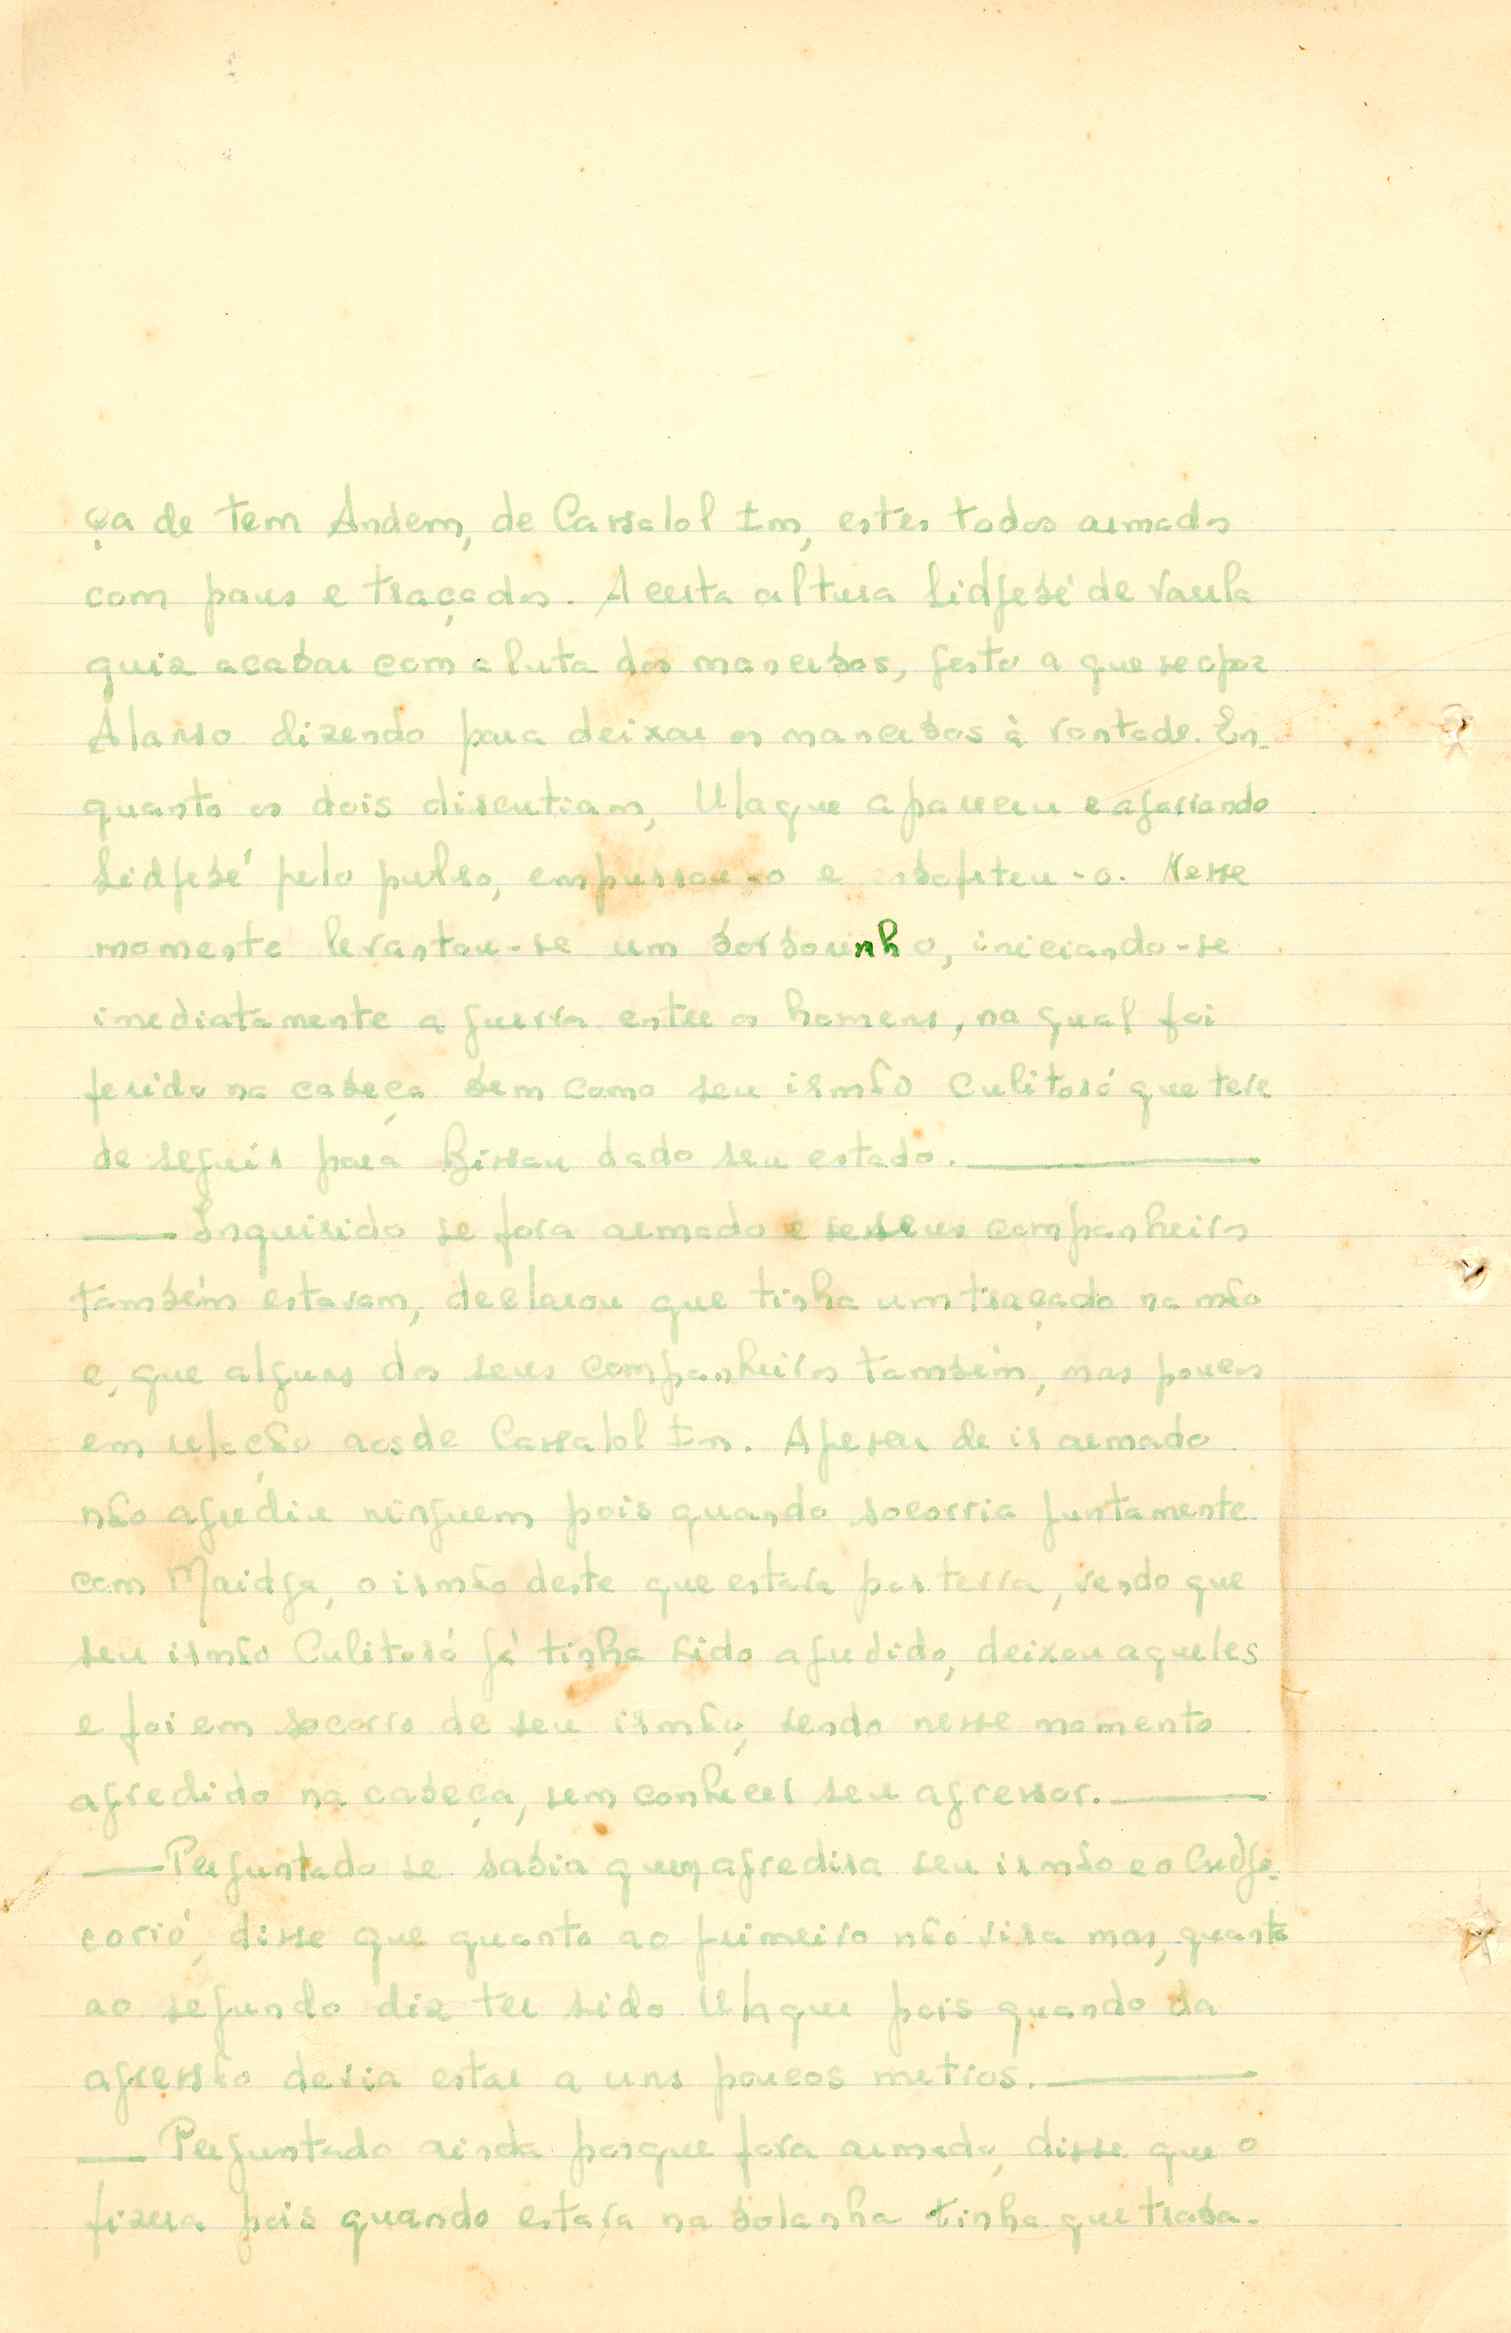 ça de tem Andem, de Cassalol Em, estes todos armados
com paus e traçados. A certa altura Sidjebé de Varela
quiz acabar com a luta dos mancebos, gesto a que se opoz
Alanso dizendo para deixar os mancebos à vontade. En-
quanto os dois discutiam, Ulaque apareceu e agarrando
Sidjebé pelo pulso, empurrou-o e esbofeteu-o. Nesse
momento levantou-se um borbourinho, iniciando-se
imediatamente a guerra entre os homens, na qual foi
ferido na cabeça bem como seu irmão Culitobó que teve
de seguir para Bissau dado seu estado.
Inquirido se fora armado e se seus companheiros
também estavam, declarou que tinha um traçado na mão
e, que alguns dos seus companheiros também, mas poucos
em relação aos de Cassalol Em. Apesar de ir armado
não agrediu ninguem pois quando socorria juntamente
com Maidja, o irmão deste que estava por terra, vendo que
seu irmão Culitobó já tinha sido agredido, deixou aqueles
e foi em socorro de seu irmão, sendo nesse momento
agredido na cabeça, sem conhecer seu agressor.
Perguntado se sabia quem agredira seu irmão e o Cudja-
corió, disse que quanto ao primeiro não vira mas, quanto
ao segundo diz ter sido Ulaque pois quando da
agressão devia estar a uns poucos metros.
Perguntado ainda porque fora armado, disse que o
fizera pois quando estava na bolanha tinha que traba-